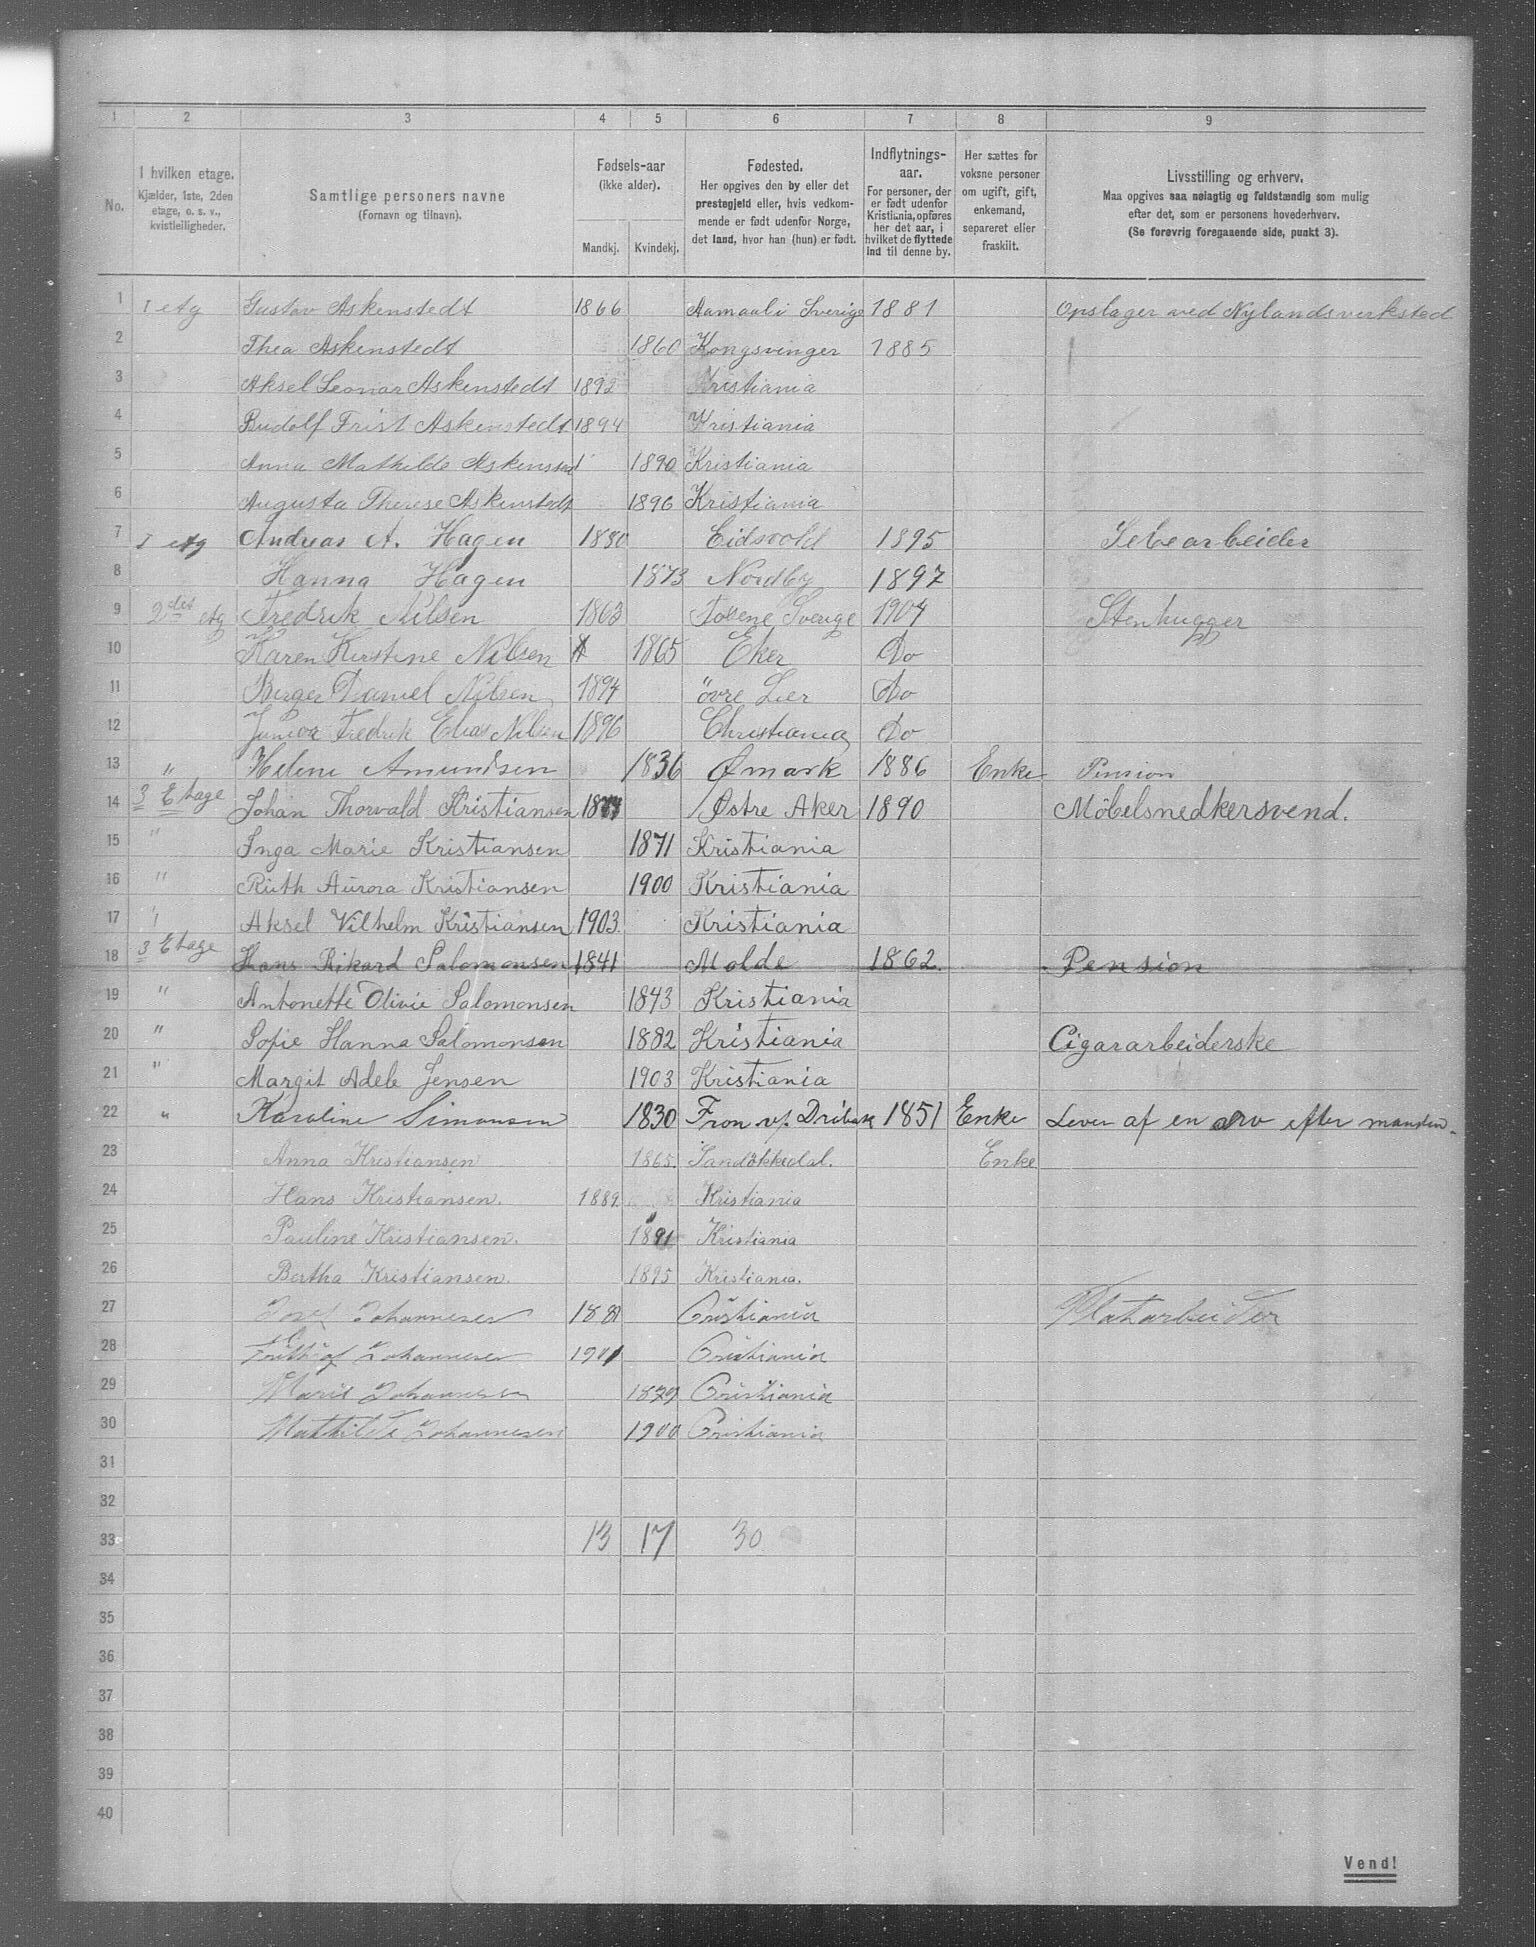 1 2 3 4 5 6 7 8 9
No.
I hvilken etage.
Kjælder, 1ste, 2den
etage, o. s. v.,
kvistleiligheder.
Samtlige personers navne
(Fornavn og tilnavn).
Fødsels-aar
(ikke alder).
Mandkj. Kvindekj.
Fødested.
Her opgives den by eller det
prestegjeld eller, hvis vedkom-
mende er født udenfor Norge,
det land, hvor han (hun) er født.
Indflytnings-
aar.
For personer, der
er født udenfor
Kristiania, opføres
her det aar, i
hvilket de flyttede
ind til denne by.
Her sættes for
voksne personer
om ugift, gift,
enkemand,
separeret eller
fraskilt.
Livsstilling og erhverv.
Maa opgives saa nøiagtig og fuldstændig som mulig
efter det, som er personens hovederhverv.
(Se forøvrig foregaaende side, punkt 3).
1 I etg Gustav Askenstedt 1866 Aamaal i Sverige 1881 Opslager ved Nylandsverksted
2 Thea Askenstedt 1860 Kongsvinger 1885
3 Aksel Leonar Askenstedt 1892 Kristiania
4 Rudolf Frist Askenstedt 1894 Kristiania
5 Anna Mathilde 1890 Kristiania
6 Augusta Therese Askenstedt 1896 Kristiania
7 I etg Andreas A. Hagen 1880 Eidsvold 1895
8 Hanna Hagen 1873 Nordby 1897
9 2den etg Fredrik Nilsen 1863 Sverige 1904 Stenhugger
10 Karen Kirstine Nilsen 1865 Eker Do
11 Birger Daniel Nilsen 1894 övre Lier Do
12 Junior Fredrik Elias Nilsen 1896 Christiania Do
13 " Helene Amundsen 1836 Ømark 1886 Enke Pension
14 3 Etage Johan Thorvald Kristiansen Østre Aker 1890 Möbelsnedkersvend.
15 " Inga Marie Kristiansen 1871 Kristiania
16 " Ruth Aurora Kristiansen 1900 Kristiania
17 " Aksel Vilhelm Kristiansen 1903 Kristiania
18 3 Etage Hans Rikard Salomonsen 1841 Molde 1862 Pension
19 " Antonette Olivie Salomonsen 1843 Kristiania
20 " Sofie Hanna Salomonsen 1882 Kristiania Cigararbeiderske
21 " Margit Adele Jensen 1903 Kristiania
22 " Karoline Simonsen 1830 Fron v/ Dröbak 1851 Enke Lever af en arv efter manden.
23 Anna Kristiansen 1865. Sandökkedal. Enke
24 Hans Kristiansen. 1889. Kristiania
25 Pauline Kristiansen. 1891 Kristiania
26 Bertha Kristiansen. 1895 Kristiania.
27 Johannesen 1881 Cristiania
28 Frithiof Johannesen 1901 Cristiania
29 Marie Johannesen 1879 Cristiania
30 Mathilde Johannesen 1900 Cristiania
31
32
33 13 17 30
34
35
36
37
38
39
40
Vend!